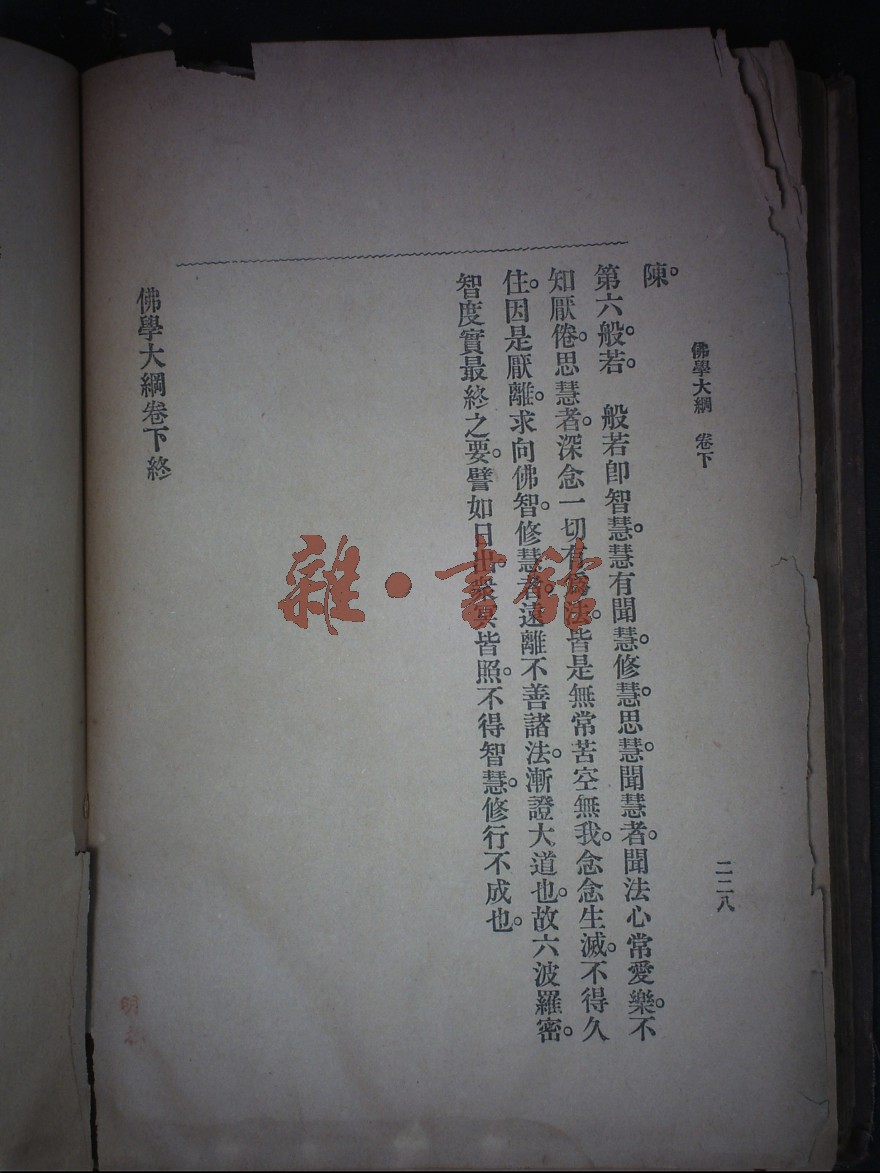 佛學大綱 卷下
二二八
陳。
第六般若。 般若卽智慧。慧有聞慧。修慧。思慧。聞慧者。聞法心常愛樂。不
知厭倦。思慧者。深念一切有爲法。皆是無常苦空無我。念念生滅。不得久
住。因是厭離。求向佛智。修慧者。遠離不善諸法。漸證大道也。故六波羅密。
智度實最終之要。譬如日出。衆冥皆照。不得智慧。修行不成也。
佛學大綱卷下終
雜·書館